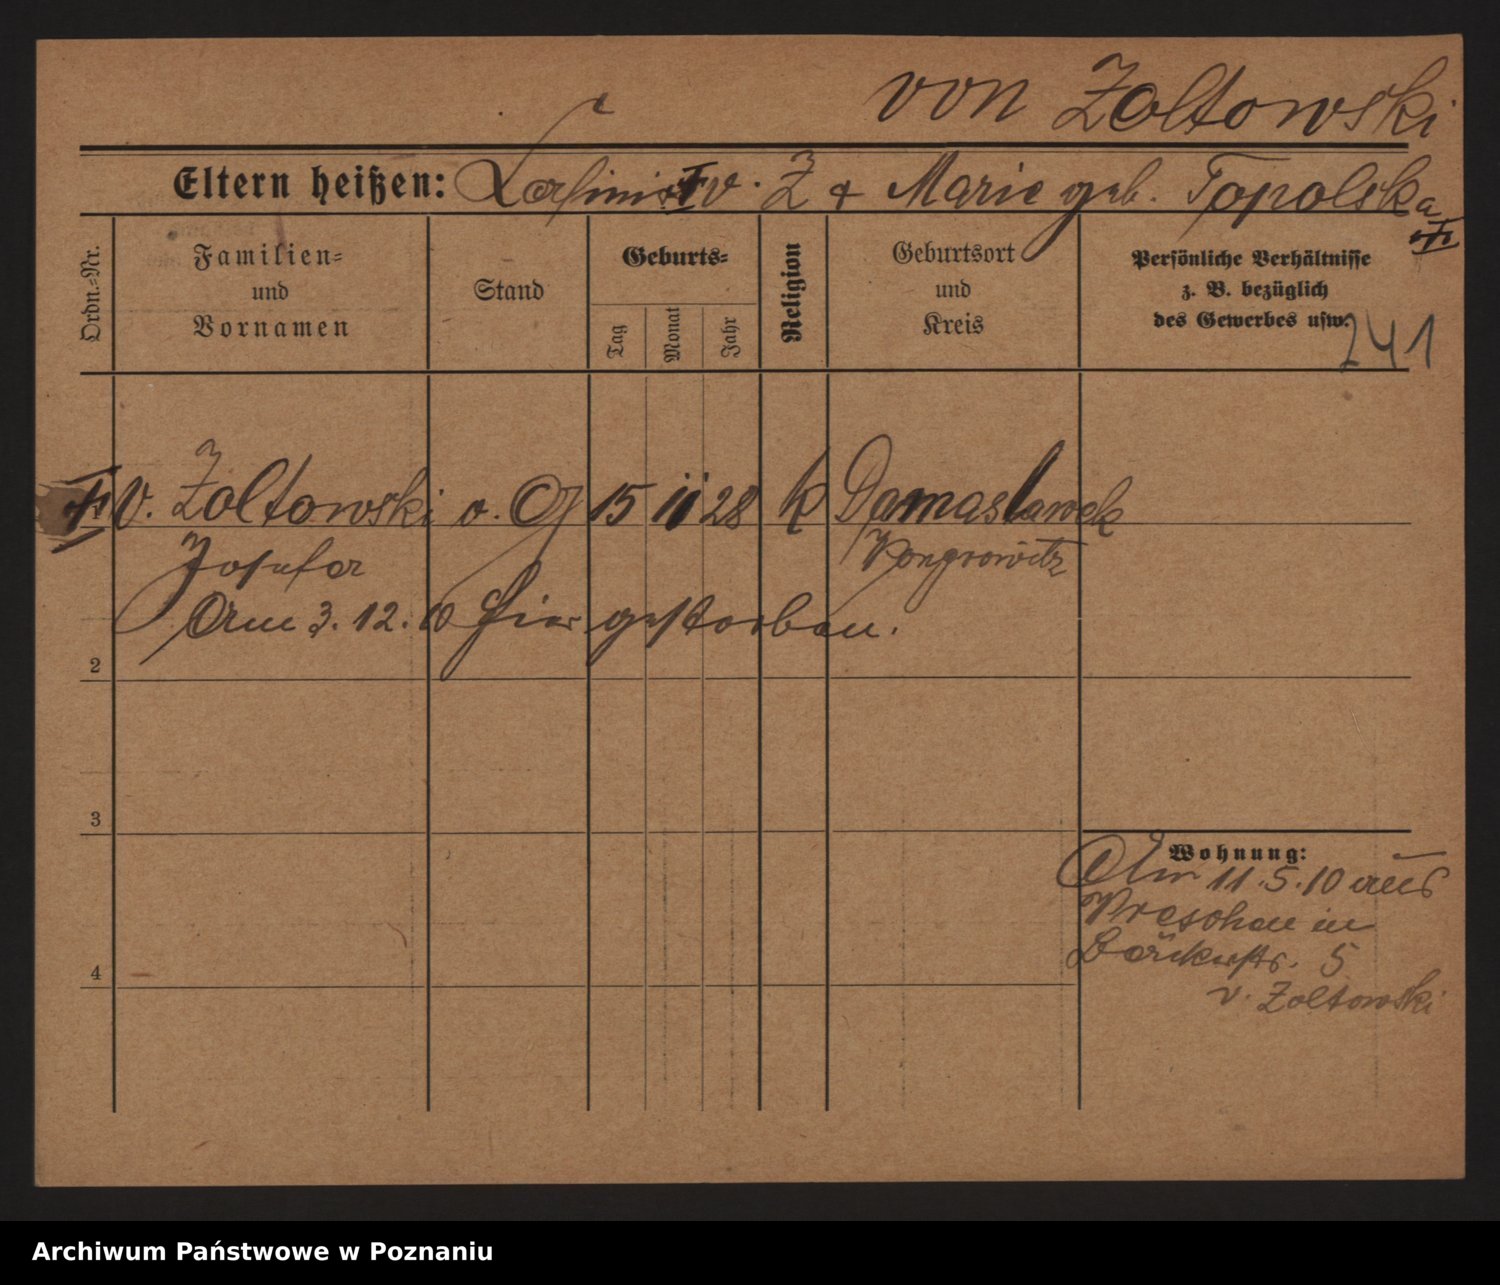 von Żołtowski
Eltern heißen: v. Z & Marie geb. Topolska
Ordn.-Nr.
Familien-
und
Vornamen
Stand
Geburts-
Tag
Monat
Jahr
Religion
Geburtsort
und
Kreis
Persönliche Verhältnisse
z. B. bezüglich
des Gewerbes usw.
241
v. Żoltowski o. G 15 11 28 k Damaslawek
Josefa Wongrowitz
Am 3. 12. 10 hier gestorben.
2
3
4
Wohnung:
Am 11.5.10 aus
in
Bäckerstr. 5
v. Zoltowski
Archiwum Państwowe w Poznaniu